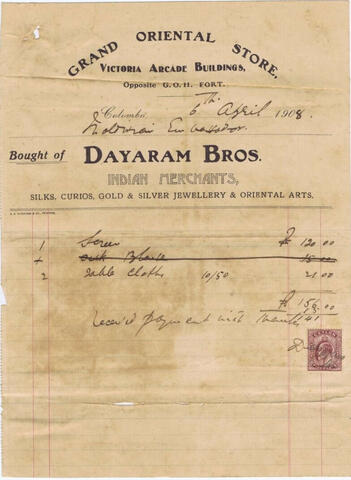 GRAND ORIENTAL STORE,
VICTORIA ARCADE BUILDINGS,
OPPOSITE G.O.H. FORT.
Colombo, 6th April 1908.
Ambassador.
Bought of DAYARAM BROS.
INDIAN MERCHANTS,
SILKS, CURIOS, GOLD & SILVER JEWELLERY & ORIENTAL ARTS.
1 Screen 120.00
silk Blouse 15.00
2 Table cloths 10/50 21.00
156.00
141
Received payment with thanks
CEYLON